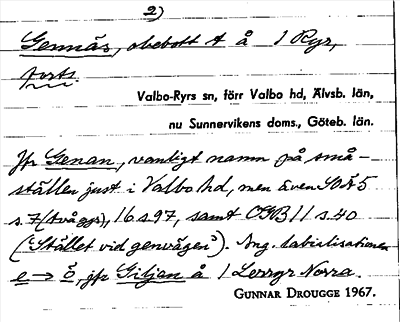 2)
Gennäs, obebott t å 1 Ryr,
forts.
Valbo-Ryrs sn, förr Valbo hd, Älvsb. län,
nu Sunnervikens doms., Göteb. län.
Jfr Genan, vanligt namn på små-
ställen just i Valbo hd, men även SOÄ 5
s. 7 (två ggr), 16 s. 97, samt OGB 11 s. 40
("Stället vid genvägen"). Ang. labialisationen
e → ö, jfr Giljan å 1 Lerryr Norra.
GUNNAR DROUGGE 1967.